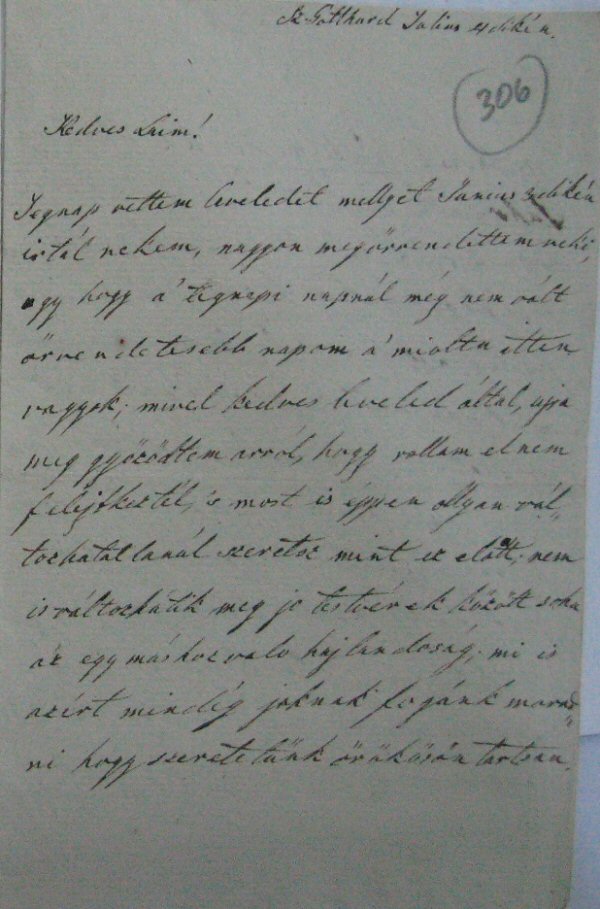 Sz. Gotthard Julius 4dikén.
306
Kedves Laim!
Tegnap vettem leveledet mellyet Junius 3dikén
irtál nekem, nagyon megörvendettem neki,
ugy hogy a' tegnapi napnál még nem vólt
örvendetesebb napom a' miolta itten
vagyok; mivel kedves leveled által, ujra
meg győződtem arról, hogy rollam el nem
felejtkeztél, 's most is éppen ollyan vál„
tozhatatlanúl szeretsz mint ez elött, nem
is változhatik meg jo testvérek között soha
az egymáshoz valo hajlandoság; mi is
azért mindég joknak fogánk marad„
ni hogy szeretetünk örökösön tartson.